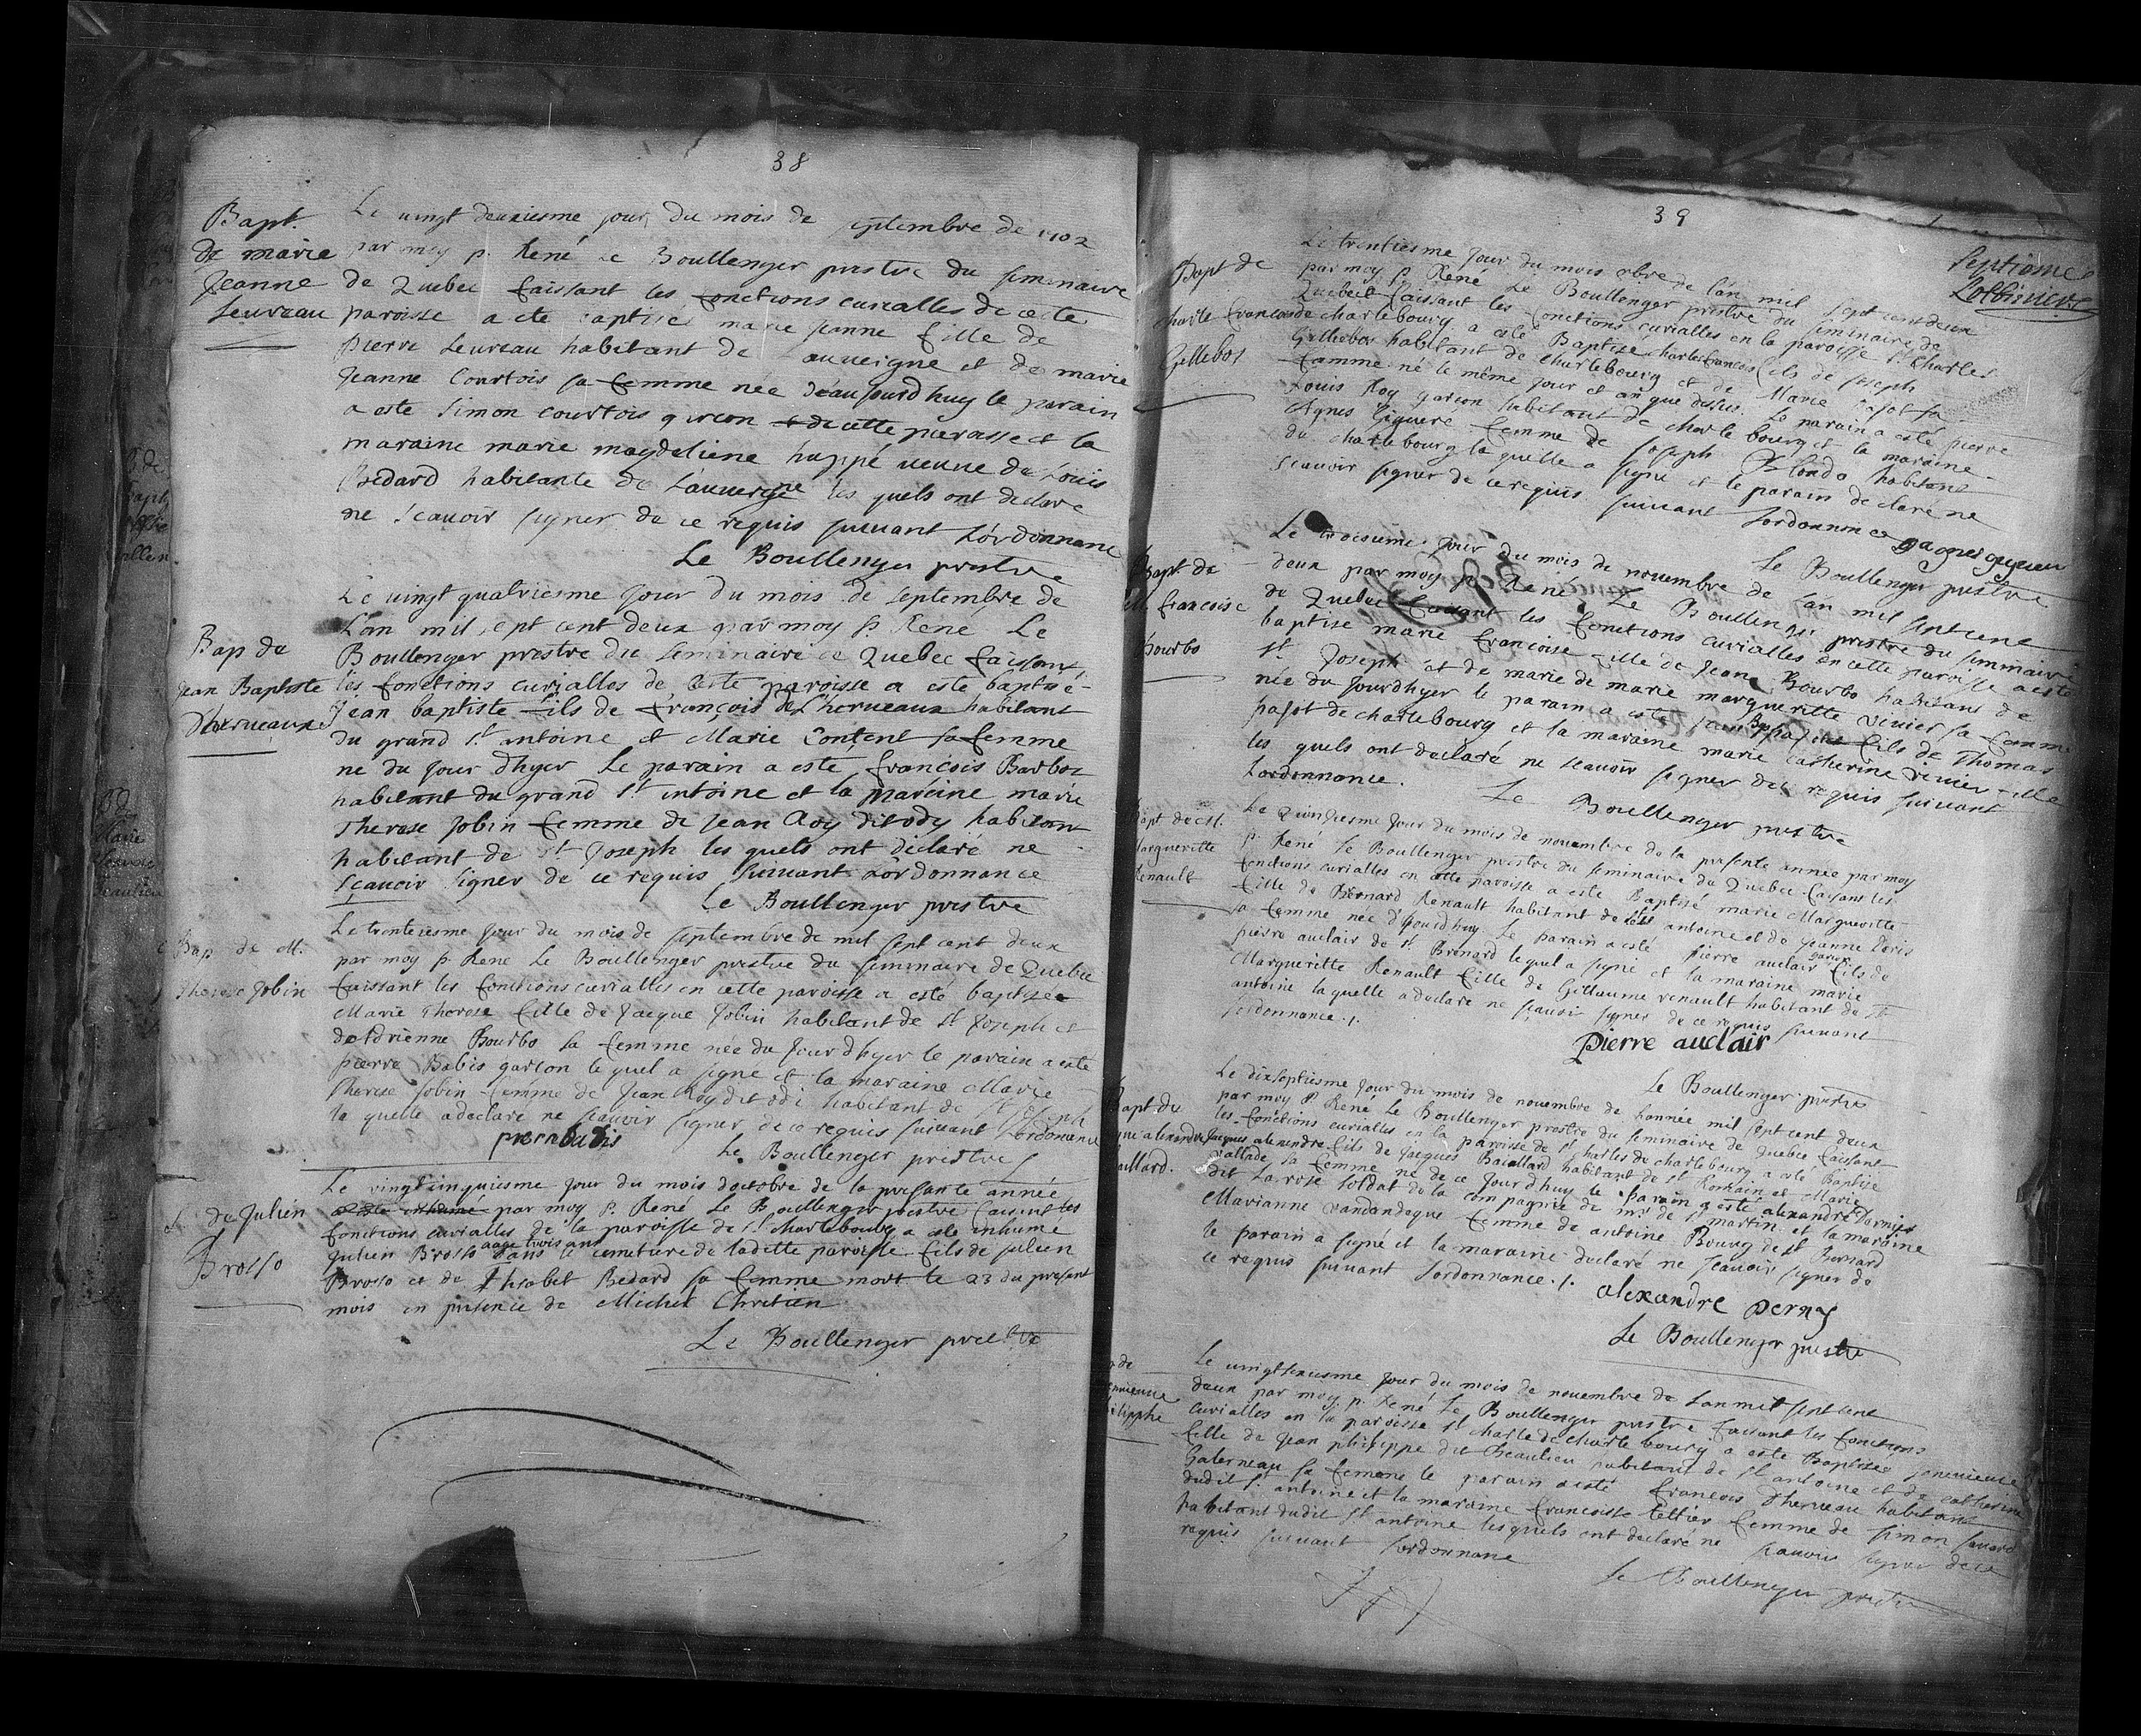 38
Bapt.
de marie
Jeanne
Leureau
Le vingt deuxiesme jour du mois de septembre de 1702
par moy p. René Le Boullenger prestre du seminaire
de Quebec faissant les fonctions curialles de cette
paroisse a ete baptisée marie jeanne fille de
pierre Leureau habitant de Lauuergne et de marie
Jeanne Courtois sa femme née d'aujourd huy le parain
a este Simon courtois garcon de cette paroisse et la
maraine marie magdeleine huppé ueuue de Louis
Bedard habitante de L'auuergne les quels ont declare
ne scauoir signer de ce requis suiuant L'ordonnance
Le Boullenger prestre
Bap de
Jean Baptiste
Dherueaux
Le uingt quatriesme jour du mois de septembre de
L'an mil sept cent deux par moy P. René Le
Boullenger prestre du seminaire de Quebec faissant
les fonctions curialles de cette paroisse a este baptisé
Jean baptiste fils de françois de L'herueaux habitant
du grand st antoine et Marie Content sa femme
ne du jour dhyer Le parain a este francois Barbot
habitant du grand st antoine et la mareine marie
Therese Jobin femme de jean Roy dit ody habitant
habitant de st Joseph les quels ont déclaré ne
sçauoir signer de ce requis suiuant Lordonnance
Le Boullenger prestre
Bap de M.
Therese Jobin
Le trentiesme jour du mois de septembre de mil sept cent deux
par moy p. René Le Boullenger prestre du seminaire de Quebec
faissant les fonctions curialles en cette paroisse a esté baptisée
Marie Therese fille de Jacque Jobin habitant de St Joseph et
de Adrienne Bourbo sa femme née du Jour dhyer le parain a este
pierre Babis garcon lequel a signe et la maraine Marie
Therese Jobin femme de Jean Roy dit odi habitant de St Joseph
la quelle a declaré ne scauoir signer de ce requis suiuant Lordonnance
Le Boullenger prestre
de Julien
Brosso
Le vingt cinquiesme jour du mois doctobre de la presante année
a este inhumé par moy P. René Le Boullenger prestre faisant les
fonctions curialles de la paroisse de St charlebourg a esté inhumé
Julien Brosso aagé trois ans dans le cemetiere de laditte paroisse fils de julien
Brosso et de Ysabel Bedard sa femme mort le 23 du present
mois en presence de Michel Chretien
Le Boullenger prestre
39
Septiéme
Lotbiniere
Bapt de
Charle francois
Gellebos
Le trentiesme jour du mois obre de l'an mil sept cent deux
par moy P. René Le Boullenger prestre du seminaire de
Quebec faissant les fonctions curialles en la paroisse st Charles
de charlebourg a esté Baptise charles francois fils de joseph
Gellebos habitant de charlebourg et de Marie pajot sa
famme né le même jour et an que dessus. Le parain a esté pierre
Louis Roy garcon habitant de charlebourg et la maraine
Agnes Liguere femme de joseph Blondo habitant
de charlebourg la quelle a signe et le parain declare ne
scauoir signer de ce requis suiuant Lordonnance
Le Boullenger prestre
Bapt. de
francoise
Bourbo
Le troisieme jour du mois de nouembre de l'an mil sept cent
deux par moy P. René Le Boullenger prestre du seminaire
de Quebec faisant les fonctions curialles en cette paroisse a esté
baptise marie francoise fille de Jean Bourbo habitant de
st Joseph et de marie de marie margueritte Venier sa femme
née du jourdhyer le parain a este Jean Bap pajot fils de Thomas
pajot de charlebourg et la maraine marie catherine renier fille
les quels ont declaré ne scauoir signer de ce requis suiuant
Lordonnance.
Le Boullenger prestre
Bapt de M.
Margueritte
Renault
Le Quinziesme jour du mois de nouembre de la presente année par moy
p. René Le Boullenger prestre du seminaire de Quebec faisant les
fonctions curialles en cette paroisse a este Baptisé marie Margueritte
fille de Bernard Renault habitant de st antoine et de jeanne Doris
sa femme née d'ojourdhuy Le parain a esté pierre auclair garcon fils de
pierre auclair de st Brenard lequel a signé et la maraine marie
Margueritte Renault fille de Gillaume renault habitant de st
antoine laquelle a declare ne sçauoir signer de ce requis suiuant
Lordonnance ./.
Pierre auclair
Le Boullenger prestre
Bapt de
jaque alexandre
Baillard.
Le dixseptiesme jour du mois de nouembre de Lannée mil sept cent deux
par moy P. René Le Boullenger prestre du seminaire de quebec faissant
les fonctions curialles en la paroisse de St Charles de charlebourg a esté Baptise
Jacques alexandre fils de Jacques Baiallard habitant de St Romain et Marie
vallade sa femme ne de ce jourd'huy le parain a esté alexandre Dernis
dit La rose soldat de la compagnie de mr de st martin et la maraine
Marianne vandandeque femme de antoine Bourg de st Bernard
le parain a signé et la maraine declaré ne sçauoir signer de
ce requis suiuant Lordonnance ./.
alexandre Derny
Le Boullenger prestre
Le uingtsixiesme jour du mois de nouembre de Lan mil sept cent
deux par moy p. René Le Boullenger prestre faisant les fonctions
curialles en la paroisse st charle de charlebourg a este Baptisée geneuieue
fille de Jean philippe dit Beaulieu habitant de st antoine et de catherine
Galerneau sa femme le parain a esté francois Dherueau habitant
dudit st antoine et la maraine francoise tellier femme de simon sauard
habitant dudit st antoine lesquels ont declaré ne scauoir signer de ce
requis suiuant Lordonnance
Le Boullenger prestre